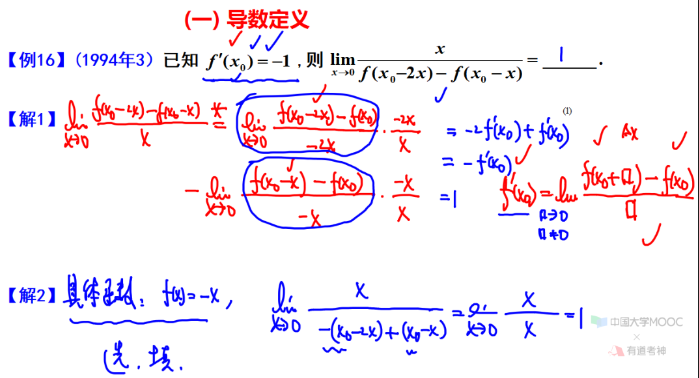 (一) 导数定义
【例16】(1994年3) 已知 f′(x₀) = −1 , 则 lim_{x→0} x / (f(x₀−2x) − f(x₀−x)) = __1__ .
【解1】 lim_{x→0} (f(x₀−2x) − f(x₀−x)) / x = lim_{x→0} (f(x₀−2x) − f(x₀)) / (−2x) · (−2x)/x = −2f′(x₀) + f′(x₀) (1) Δx
− lim_{x→0} (f(x₀−x) − f(x₀)) / (−x) · (−x)/x = −f′(x₀) = 1
f′(x₀) = lim_{□→0, □≠0} (f(x₀+□) − f(x₀)) / □
【解2】 具体函数: f(x) = −x , lim_{x→0} x / (−(x₀−2x) + (x₀−x)) = lim_{x→0} x/x = 1
选.填.
中国大学MOOC
×
有道考神